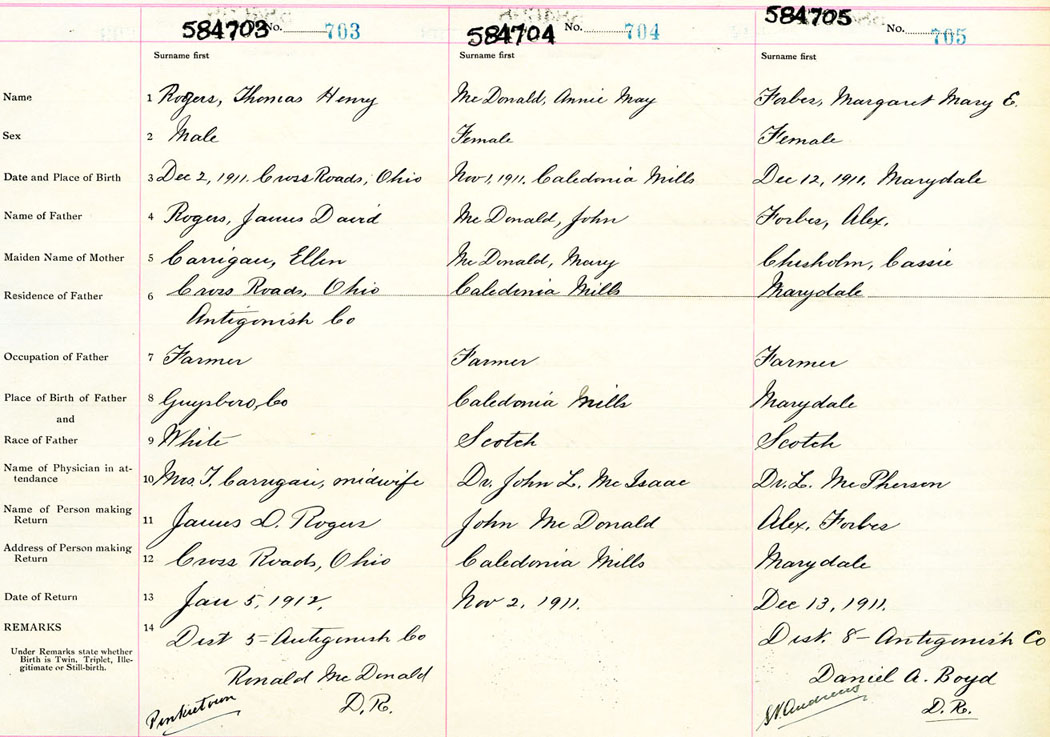 584703 No. 703 584704 No. 704 584705 No. 705
Surname first Surname first Surname first
Name 1 Rogers, Thomas Henry McDonald, Annie May Forbes, Margaret Mary E.
Sex 2 Male Female Female
Date and Place of Birth 3 Dec 2, 1911. Cross Roads, Ohio Nov 1, 1911. Caledonia Mills Dec 12, 1911. Marydale
Name of Father 4 Rogers, James David McDonald, John Forbes, Alex.
Maiden Name of Mother 5 Carrigan, Ellen McDonald, Mary Chisholm, Cassie
Residence of Father 6 Cross Roads, Ohio Caledonia Mills Marydale
Antigonish Co
Occupation of Father 7 Farmer Farmer Farmer
Place of Birth of Father 8 Guysboro, Co Caledonia Mills Marydale
and
Race of Father 9 White Scotch Scotch
Name of Physician in at-
tendance 10 Mrs. T. Carrigan, midwife Dr. John L. McIsaac Dr. L. McPherson
Name of Person making
Return 11 James D. Rogers John McDonald Alex, Forbes
Address of Person making
Return 12 Cross Roads, Ohio Caledonia Mills Marydale
Date of Return 13 Jan 5, 1912. Nov 2, 1911. Dec 13, 1911.
REMARKS 14 Dist 5 - Antigonish Co Dist. 8 - Antigonish Co
Under Remarks state whether
Birth is Twin, Triplet, Ille-
gitimate or Still-birth.
Ronald McDonald Daniel A. Boyd
Pinkietown D.R. St. Andrews D.R.